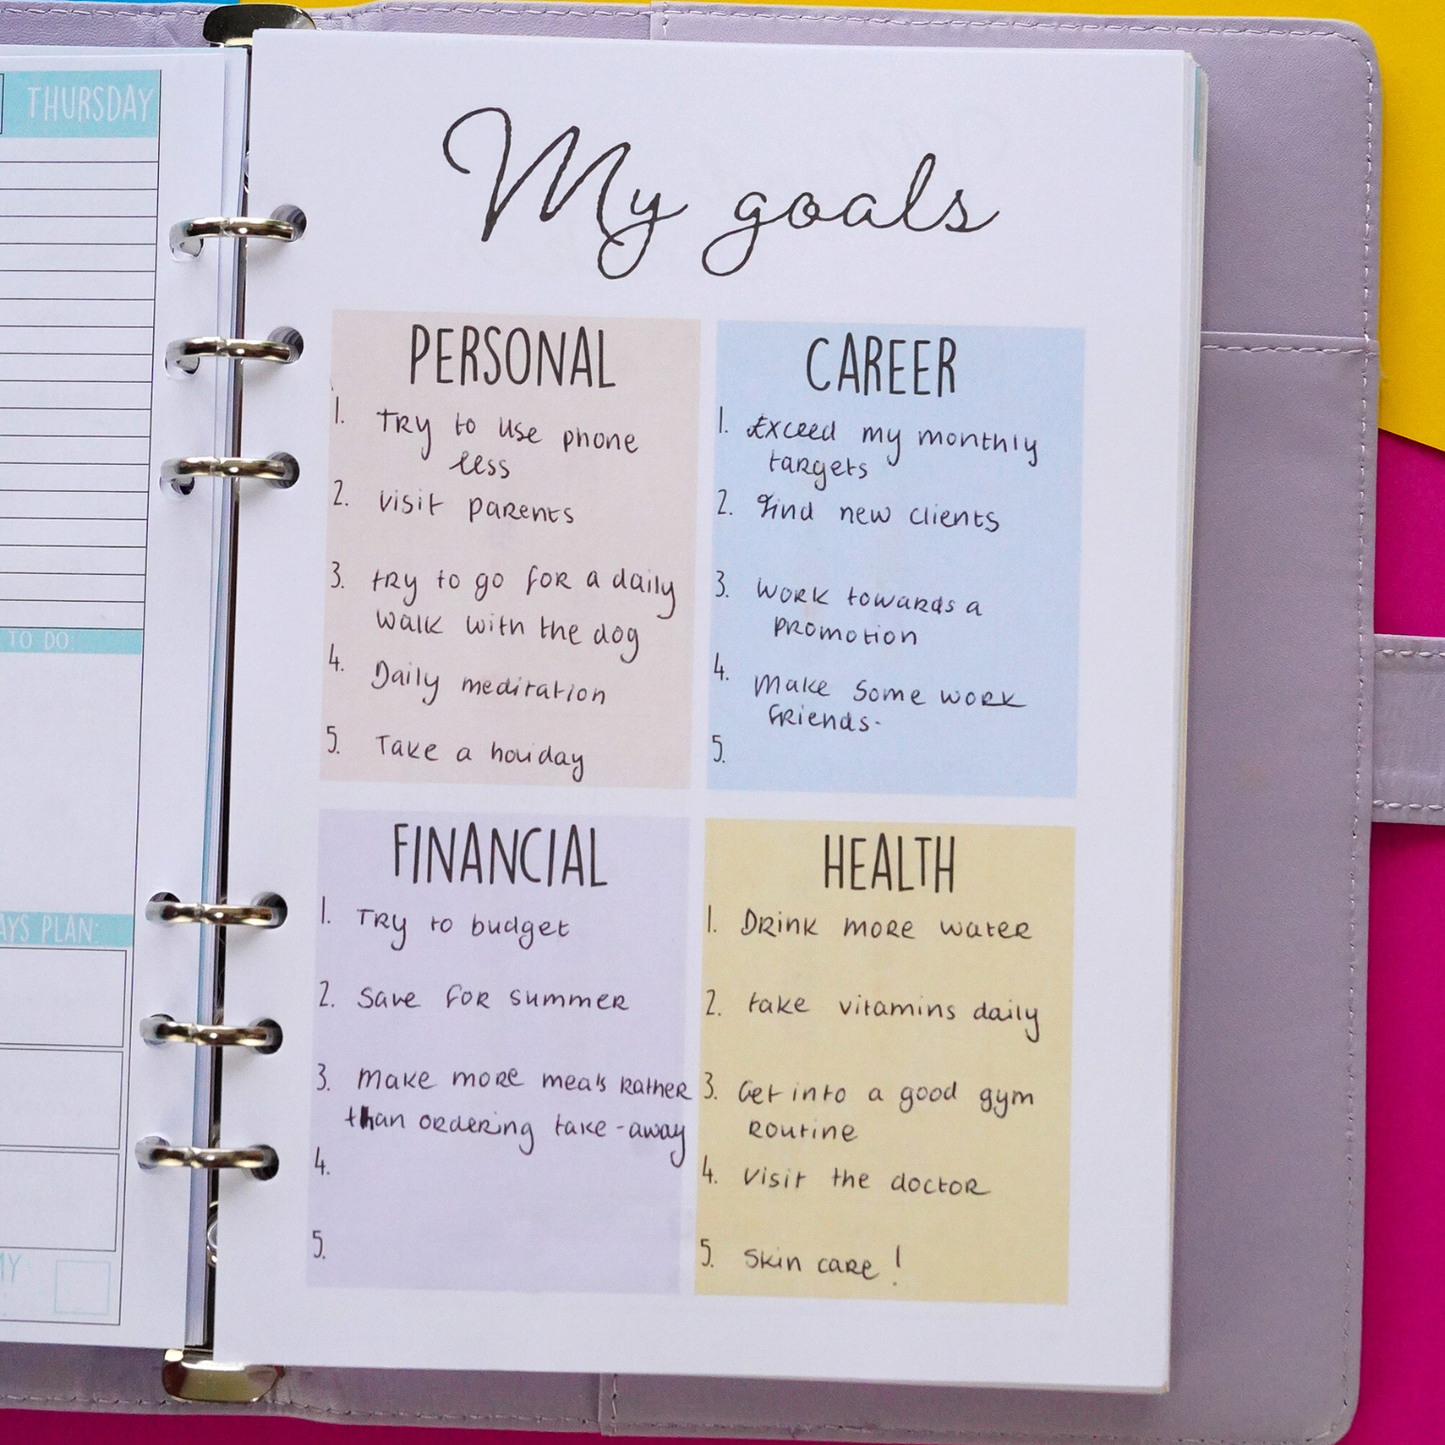 THURSDAY
TO DO:
AYS PLAN:
MY
My goals
PERSONAL
1. TRy to use phone
less
2. visit parents
3. try to go for a daily
walk with the dog
4. Daily meditation
5. Take a holiday
CAREER
1. Exceed my monthly
targets
2. find new clients
3. Work towards a
promotion
4. Make some work
friends.
5.
FINANCIAL
1. Try to budget
2. Save for summer
3. Make more meals rather
than ordering take-away
4.
5.
HEALTH
1. Drink more water
2. take vitamins daily
3. Get into a good gym
routine
4. Visit the doctor
5. Skin care!